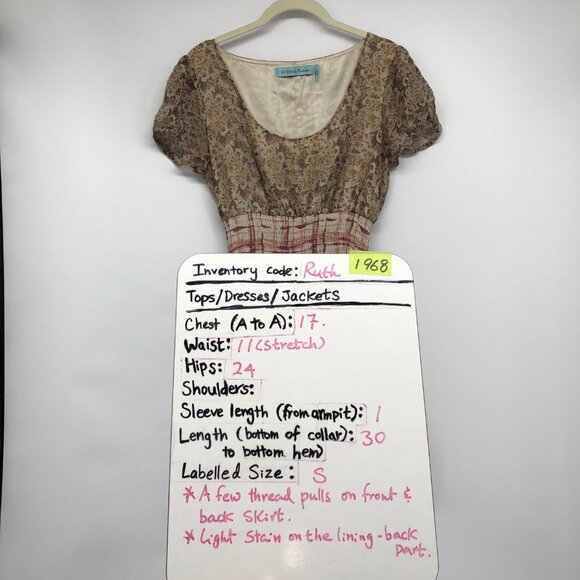 Inventory code: Ruth 1968
Tops/Dresses/Jackets
Chest (A to A): 17.
Waist: 11 (stretch)
Hips: 24
Shoulders:
Sleeve length (from armpit): 1
Length (bottom of collar): 30
to bottom hem)
Labelled Size: S
* A few thread pulls on front &
back skirt.
* Light stain on the lining - back
part.